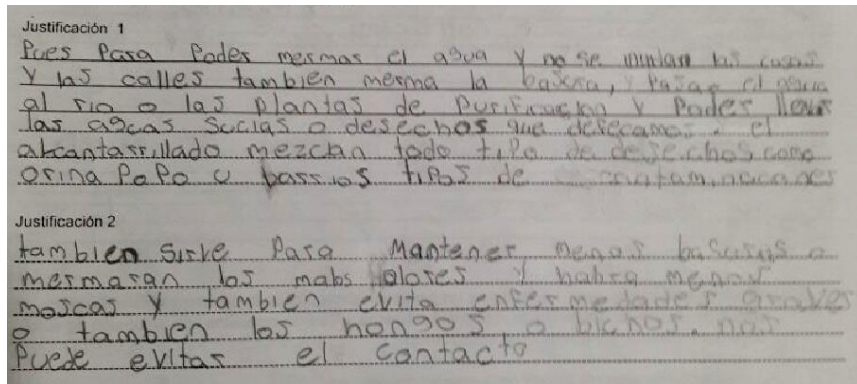 Justificación 1
Pues Para Poder mermar el agua y no se inundan las casas
Y las calles tambien merma la basura, y Pasar el agua
al rio o las plantas de Purificacion y Poder llevar
las agcas sucias o desechos que desecamos. el
alcantarrillado mezclan todo tipo de desechos como
orina PoPo u barrios tipos de
Justificación 2
tambien sirve Para Mantener menos basuras o
mermaran los mabs olores y habra menos
moscas y tambien evita enfermedades graves
o tambien los hongos o bichos. nos
Puede evitar el contacto